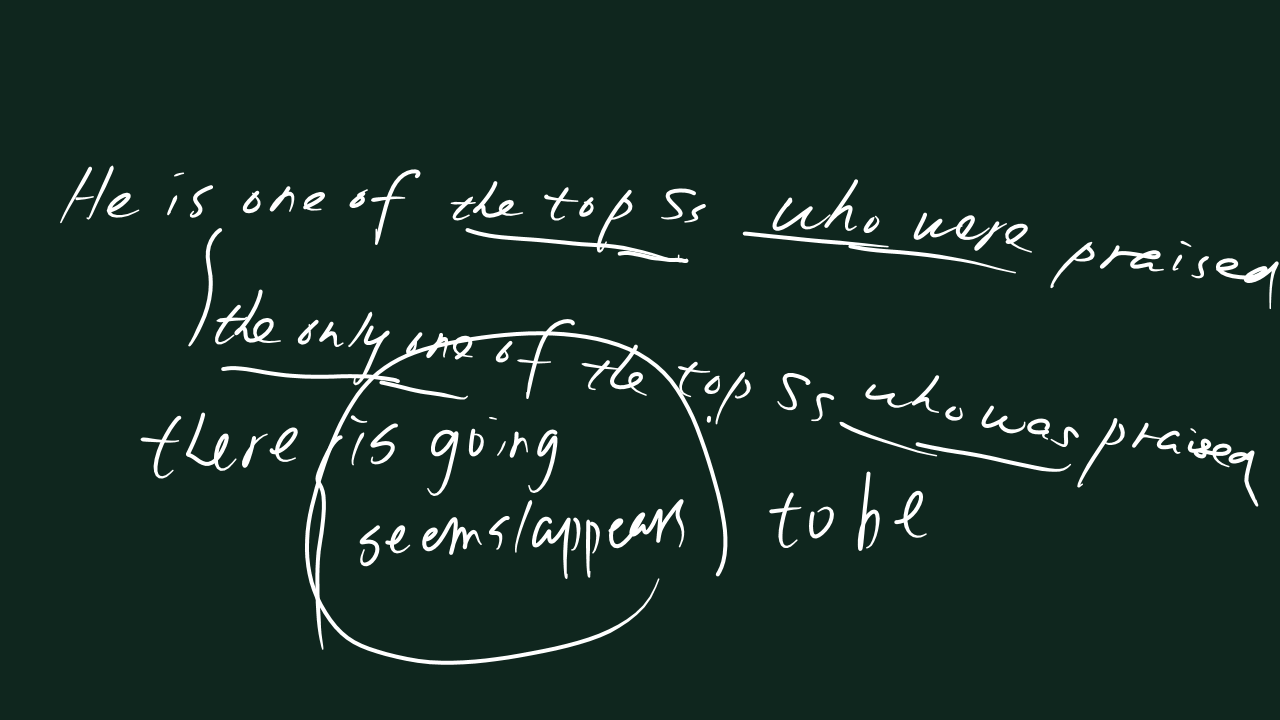 He is one of the top Ss who were praised
the only one of the top Ss who was praised
there is going
seems/appears to be